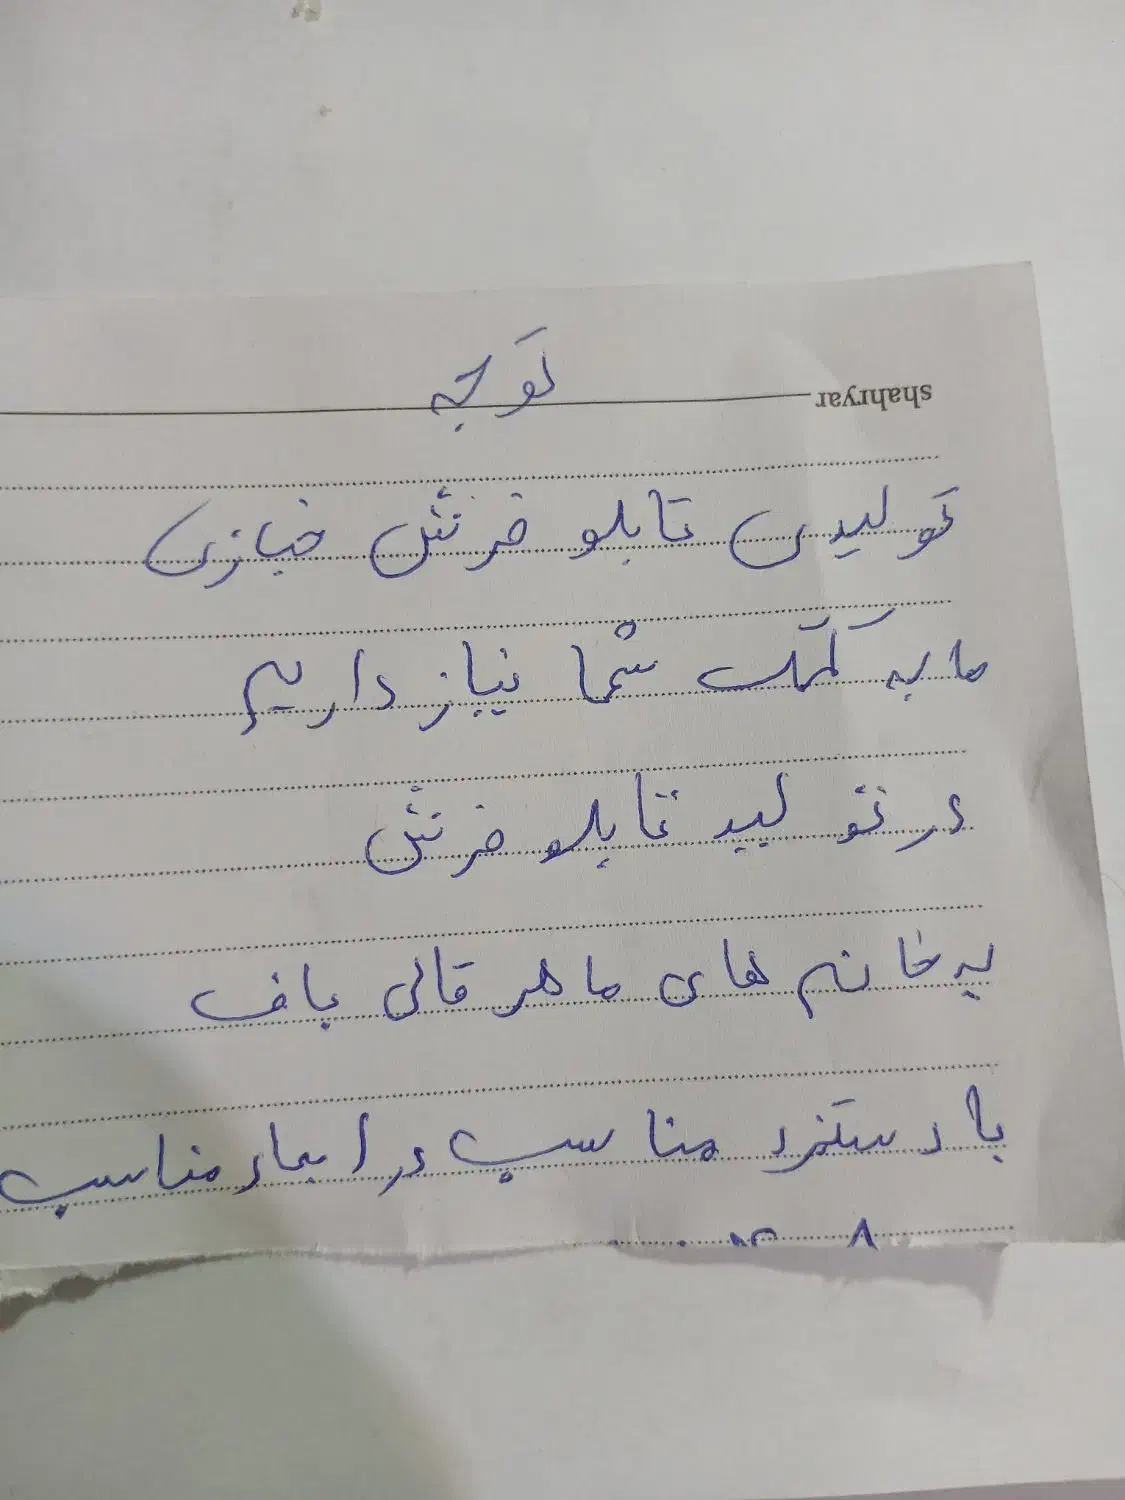 توجه
shahryar
تولیدی تابلو فرش خبازی
ما به کمک شما نیاز داریم
در تولید تابلو فرش
به خانم های ماهر قالی باف
با دستمزد مناسب در ابعاد مناسب